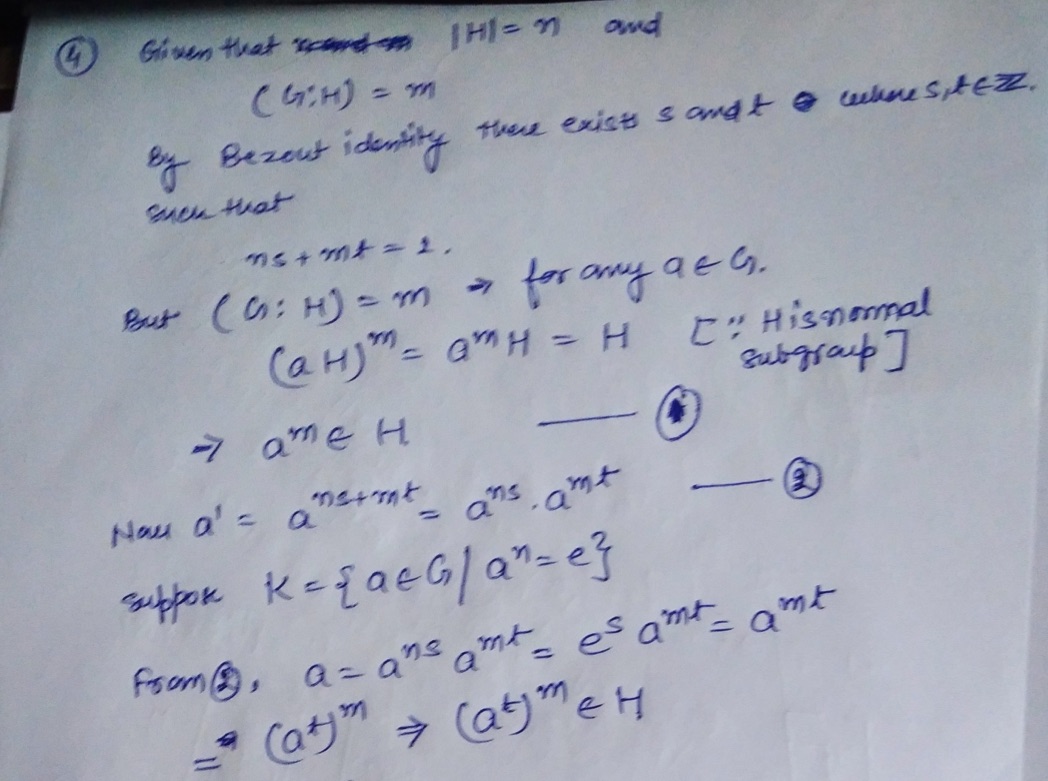 ④ Given that |H| = n and
(G:H) = m
By Bezout identity there exists s and t where s,t ∈ ℤ.
such that
ns + mt = 1.
But (G:H) = m → for any a ∈ G.
(aH)^m = a^m H = H [∵ H is normal
subgroup]
⇒ a^m ∈ H —— ①
Now a' = a^{ns+mt} = a^{ns} . a^{mt} —— ②
suppose K = {a ∈ G | a^n = e}
From ②, a = a^{ns} a^{mt} = e^s a^{mt} = a^{mt}
= (a^t)^m ⇒ (a^t)^m ∈ H